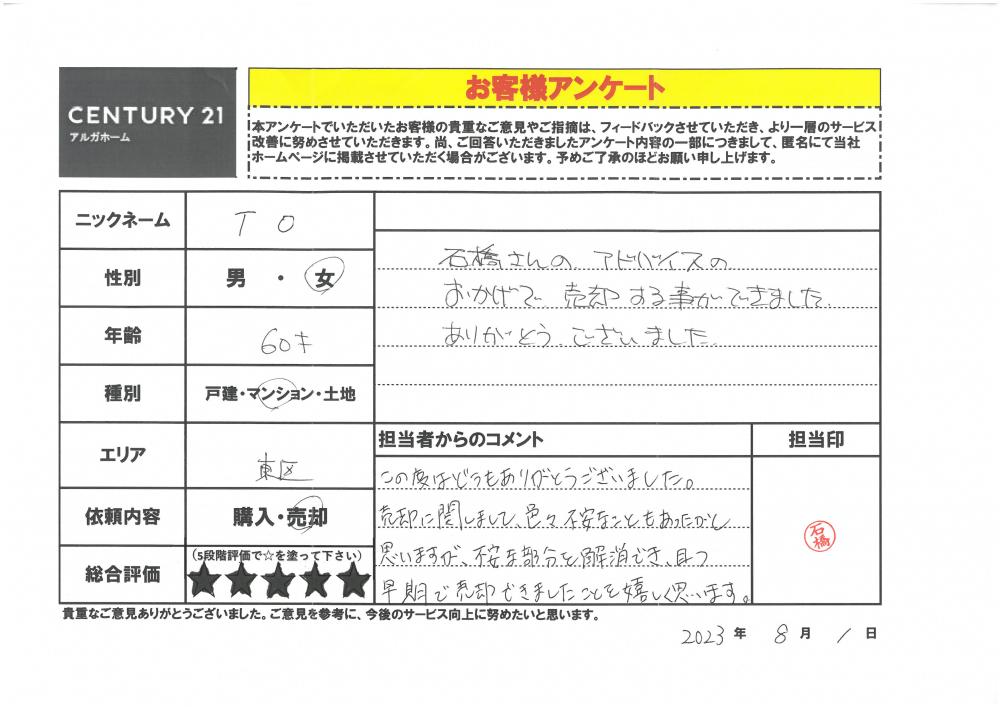 CENTURY 21
アルガホーム
お客様アンケート
本アンケートでいただいたお客様の貴重なご意見やご指摘は、フィードバックさせていただき、より一層のサービス
改善に努めさせていただきます。尚、ご回答いただきましたアンケート内容の一部につきまして、匿名にて当社
ホームページに掲載させていただく場合がございます。予めご了承のほどお願い申し上げます。
ニックネーム
T O
性別
男 ・ 女
年齢
60才
種別
戸建・マンション・土地
エリア
東区
依頼内容
購入・売却
総合評価
(5段階評価で☆を塗って下さい)
★★★★★
石橋さんの アドバイスの
おかげで 売却する事ができました。
ありがとう ございました。
担当者からのコメント
この度はどうもありがとうございました。
売却に関しまして、色々不安なこともあったかと
思いますが、不安な部分を解消でき、且つ
早期で売却できましたことを嬉しく思います。
担当印
石橋
貴重なご意見ありがとうございました。ご意見を参考に、今後のサービス向上に努めたいと思います。
2023 年 8 月 1 日